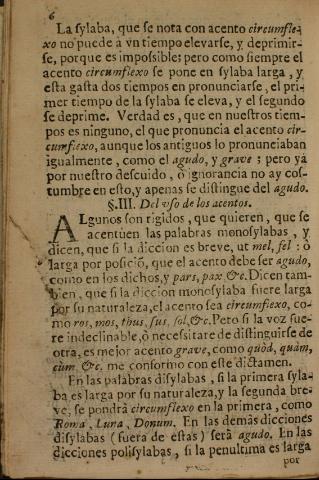 6
La sylaba, que se nota con acento circumfle-
xo no puede à vn tiempo elevarse, y deprimir-
se, porque es impossible; pero como siempre el
acento circumflexo se pone en sylaba larga, y
esta gasta dos tiempos en pronunciarse, el pri-
mer tiempo de la sylaba se eleva, y el segundo
se deprime. Verdad es, que en nuestros tiem-
pos es ninguno, el que pronuncia el acento cir-
cumflexo, aunque los antiguos lo pronunciaban
igualmente, como el agudo, y grave; pero yà
por nuestro descuido, ò ignorancia no ay cos-
tumbre en esto, y apenas se distingue del agudo.
§. III. Del vso de los acentos.
ALgunos son rigidos, que quieren, que se
acentùen las palabras monosylabas, y
dicen, que si la diccion es breve, ut mel, fel: ò
larga por posiciõ, que el acento debe ser agudo,
como en los dichos, y pars, pax &c. Dicen tam-
bien, que si la diccion monosylaba fuere larga
por su naturaleza, el acento sea circumflexo, co-
mo ros, mos, thus, sus, sol, &c. Pero si la voz fue-
re indeclinable, ò necessitare de distinguirse de
otra, es mejor acento grave, como quòd, quàm,
cùm &c. me conformo con este dictamen.
En las palabras disylabas, si la primera syla-
ba es larga por su naturaleza, y la segunda bre-
ve, se pondrà circumflexo en la primera, como
Roma, Luna, Donum. En las demàs dicciones
disylabas (fuera de estas) serà agudo. En las
dicciones polisylabas, si la penultima es larga
por